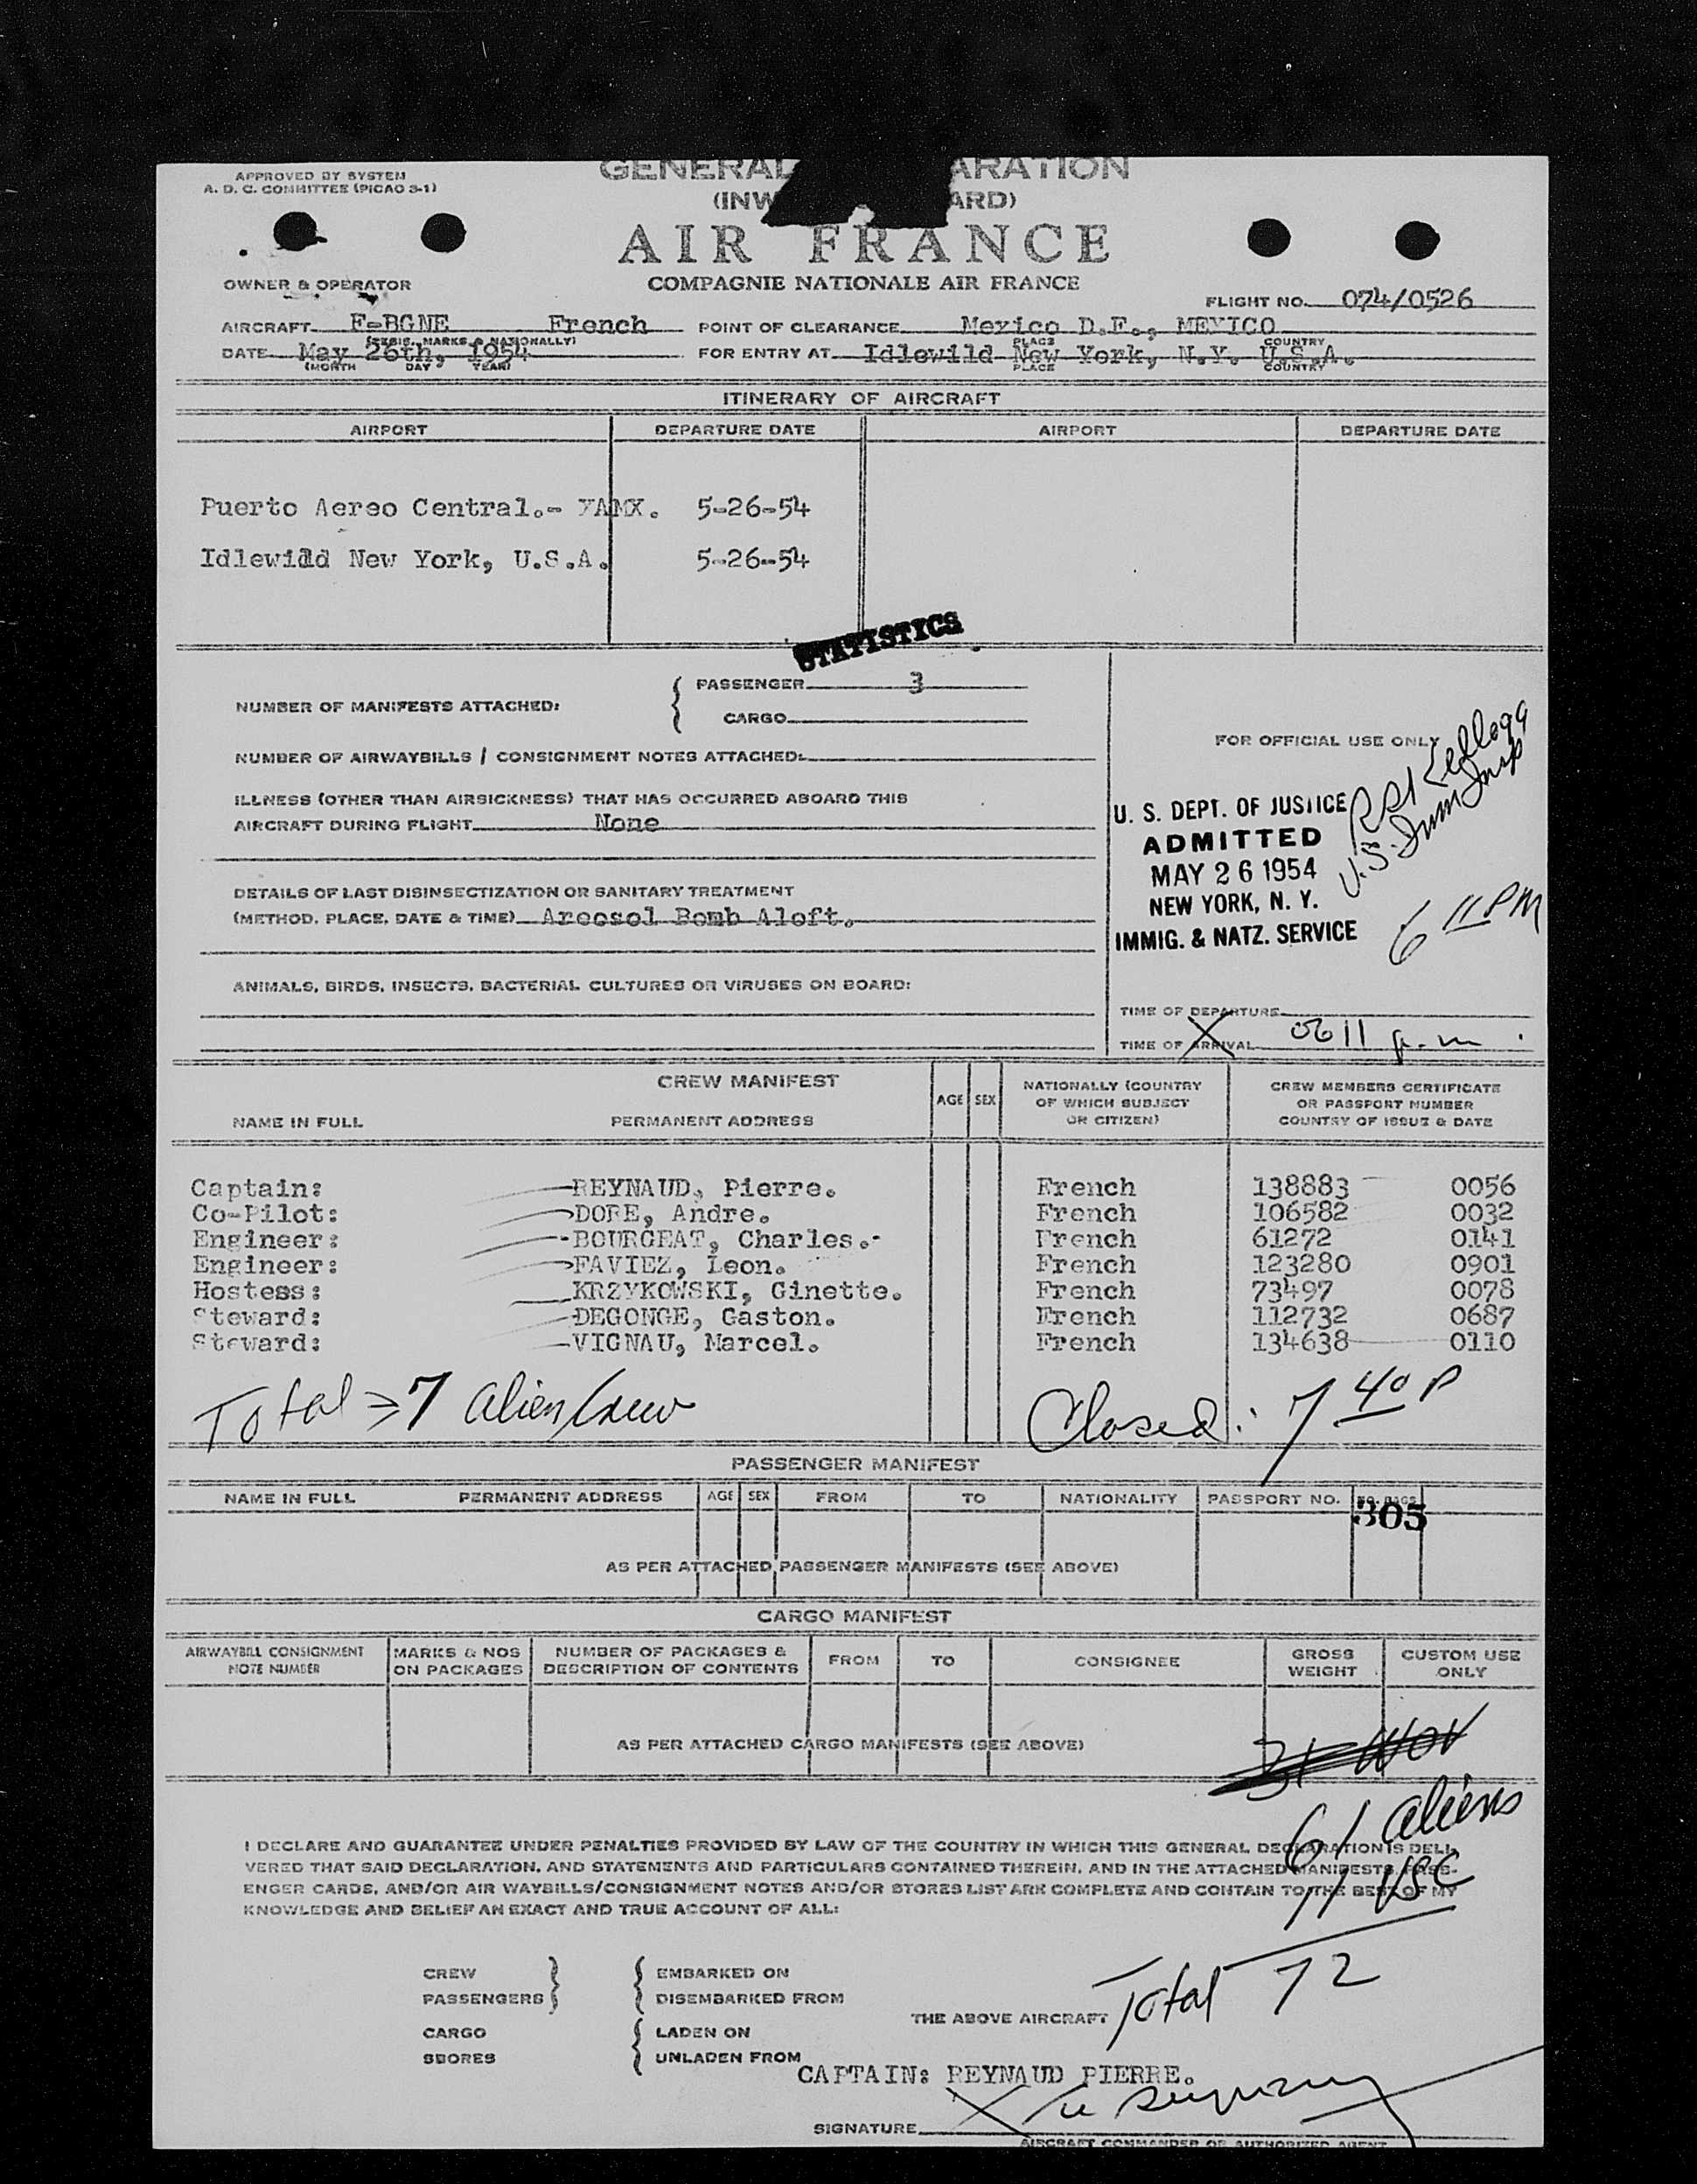 APPROVED BY SYSTEM
A. D. C. COMMITTEE (PICAO 3-1)
GENERAL ARATION
(INW ARD)
AIR FRANCE
COMPAGNIE NATIONALE AIR FRANCE
OWNER & OPERATOR
FLIGHT NO. 074/0526
AIRCRAFT F-BGNE French POINT OF CLEARANCE Mexico D.F., MEXICO
(REGIS. MARKS & NATIONALLY) PLACE COUNTRY
DATE May 26th, 1954 FOR ENTRY AT Idlewild New York, N.Y. U.S.A.
(MONTH DAY YEAR) PLACE COUNTRY
ITINERARY OF AIRCRAFT
AIRPORT DEPARTURE DATE AIRPORT DEPARTURE DATE
Puerto Aereo Central.- 5-26-54
Idlewild New York, U.S.A. 5-26-54
STATISTICS
NUMBER OF MANIFESTS ATTACHED: { PASSENGER 3
CARGO
NUMBER OF AIRWAYBILLS / CONSIGNMENT NOTES ATTACHED:
ILLNESS (OTHER THAN AIRSICKNESS) THAT HAS OCCURRED ABOARD THIS
AIRCRAFT DURING FLIGHT None
DETAILS OF LAST DISINSECTIZATION OR SANITARY TREATMENT
(METHOD, PLACE, DATE & TIME) Areosol Bomb Aloft.
ANIMALS, BIRDS, INSECTS, BACTERIAL CULTURES OR VIRUSES ON BOARD:
FOR OFFICIAL USE ONLY
Kellogg
U.S. Imm Insp
U. S. DEPT. OF JUSTICE
ADMITTED
MAY 26 1954
NEW YORK, N. Y.
IMMIG. & NATZ. SERVICE
6 11 PM
TIME OF DEPARTURE
TIME OF ARRIVAL 0611 p.m.
CREW MANIFEST
NAME IN FULL PERMANENT ADDRESS AGE SEX NATIONALLY (COUNTRY OF WHICH SUBJECT OR CITIZEN) CREW MEMBERS CERTIFICATE OR PASSPORT NUMBER COUNTRY OF ISSUE & DATE
Captain: REYNAUD, Pierre. French 138883 0056
Co-Pilot: DORE, Andre. French 106582 0032
Engineer: BOURGEAT, Charles.- French 61272 0141
Engineer: FAVIEZ, Leon. French 123280 0901
Hostess: KRZYKOWSKI, Ginette. French 73497 0078
Steward: DEGONGE, Gaston. French 112732 0687
Steward: VIGNAU, Marcel. French 134638 0110
Total 7 alien crew Closed: 7 40 P
PASSENGER MANIFEST
NAME IN FULL PERMANENT ADDRESS AGE SEX FROM TO NATIONALITY PASSPORT NO. NO. BAGS
305
AS PER ATTACHED PASSENGER MANIFESTS (SEE ABOVE)
CARGO MANIFEST
AIRWAYBILL CONSIGNMENT NOTE NUMBER MARKS & NOS ON PACKAGES NUMBER OF PACKAGES & DESCRIPTION OF CONTENTS FROM TO CONSIGNEE GROSS WEIGHT CUSTOM USE ONLY
AS PER ATTACHED CARGO MANIFESTS (SEE ABOVE)
61 aliens
11 USC
Total 72
I DECLARE AND GUARANTEE UNDER PENALTIES PROVIDED BY LAW OF THE COUNTRY IN WHICH THIS GENERAL DECLARATION IS DELI-
VERED THAT SAID DECLARATION, AND STATEMENTS AND PARTICULARS CONTAINED THEREIN, AND IN THE ATTACHED MANIFESTS, PASS-
ENGER CARDS, AND/OR AIR WAYBILLS/CONSIGNMENT NOTES AND/OR STORES LIST ARE COMPLETE AND CONTAIN TO THE BEST OF MY
KNOWLEDGE AND BELIEF AN EXACT AND TRUE ACCOUNT OF ALL:
CREW EMBARKED ON
PASSENGERS DISEMBARKED FROM
THE ABOVE AIRCRAFT
CARGO LADEN ON
SBORES UNLADEN FROM
CAPTAIN: REYNAUD PIERRE.
SIGNATURE
AIRCRAFT COMMANDER OR AUTHORIZED AGENT